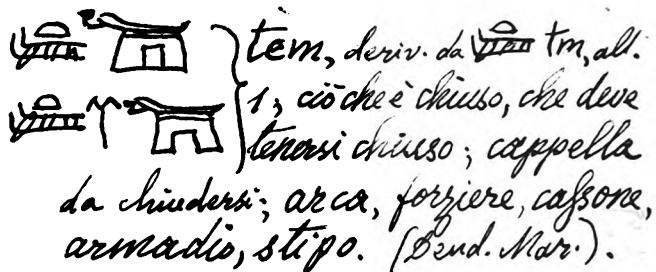 tèm, deriv. da tm, alt.
1; ciò che è chiuso, che deve
tenersi chiuso; cappella
da chiudersi; arca, forziere, cassone,
armadio, stipo. (Bend. Mar.).